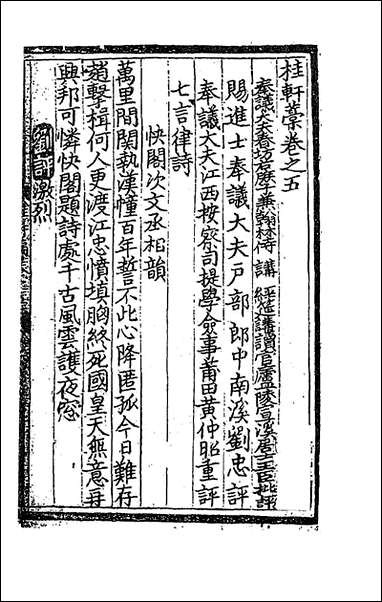 桂軒藁卷之五
奉議大夫春坊右庶子兼翰林侍講經筵講官廬陵巨溪居士王臣批評
賜進士奉議大夫戶部郎中南溪劉忠評
奉議大夫江西按察司提學僉事莆田黃仲昭重評
七言律詩
快閣次文丞相韻
萬里間關執漢幢百年誓不此心降匿孤今日難存
趙擊楫何人更渡江忠憤填胸終死國皇天無意再
興邦可憐快閣題詩處千古風雲護夜窓
劉評激烈